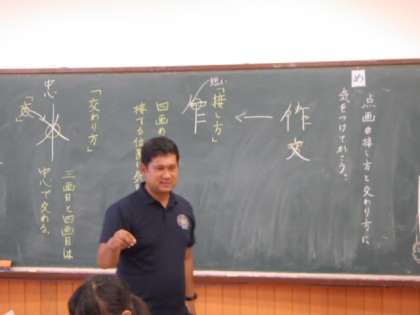 め
点画の接し方と交わり方に
気をつけてかこう。
作文
←
「接し方」
四画め
接する位置
「交わり方」
忠
三画目と四画目は
中心で交わる。